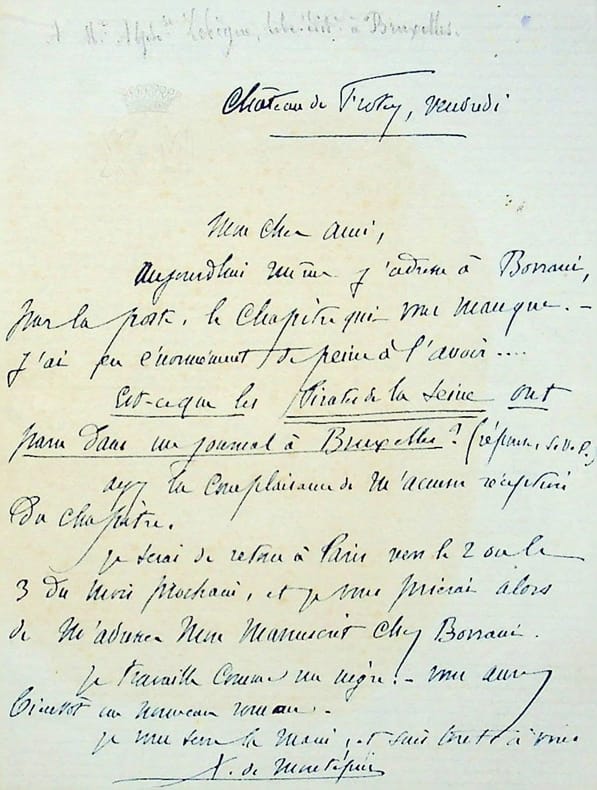 A Mr. Alph.se Lebègue, à Bruxelles.
Château de Frotey, vendredi
Mon cher ami,
Aujourdhui même j'adresse à Borrani,
par la poste, le chapitre qui vous manque. -
J'ai eu énormément de peine à l'avoir....
Est-ce que les Pirates de la Seine ont
paru dans un journal à Bruxelles? (réponse, S.V.P.)
ayez la complaisance de m'accuser réception
du chapitre.
je serai de retour à Paris vers le 2 ou le
3 du mois prochain, et je vous prierai alors
de m'adresser mon manuscrit chez Borrani.
je travaille comme un nègre. - vous aurez
bientôt un nouveau roman. -
je vous serre la main, et suis tout à vous
X. de Montépin